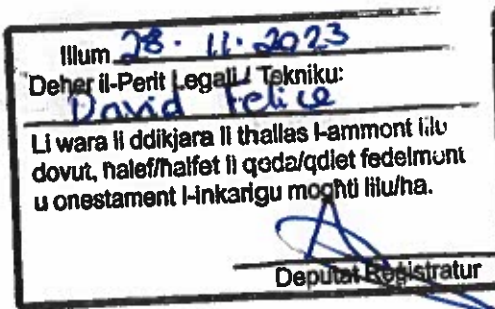 Illum 28. 11. 2023
Deher il-Perit Legali / Tekniku:
David Felice
Li wara li ddikjara li tħallas l-ammont lilu
dovut, ħalef/ħalfet li qeda/qdiet fedelment
u onestament l-inkarigu mogħti lilu/ha.
Deputat Registratur